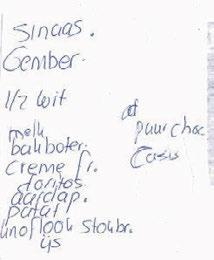 Sinaas.
Gember.
1/2 wit
melk
bakboter.
creme fr.
doritos
aardap.
patat
knoflook stokbr.
ijs
puur choc
Casis